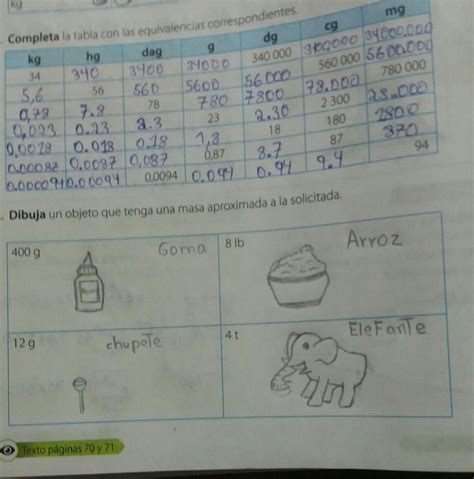 kg
Completa la tabla con las equivalencias correspondientes.
kg hg dag g dg cg mg
34 340 3400 34000 340 000 34.000.000
5,6 56 560 5600 56000 560 000 5600000
0,78 7.8 78 780 7800 78.000 780 000
0,023 0.23 2.3 23 2.30 2 300 23.000
0,0018 0.018 0.18 1,8 18 180 1800
0.00087 0.0087 0,087 0,87 8.7 87 870
0.000094 0.00094 0,0094 0.094 0.94 9.4 94
. Dibuja un objeto que tenga una masa aproximada a la solicitada.
400 g Goma 8 lb Arroz
12 g chupete 4 t Elefante
Texto páginas 70 y 71